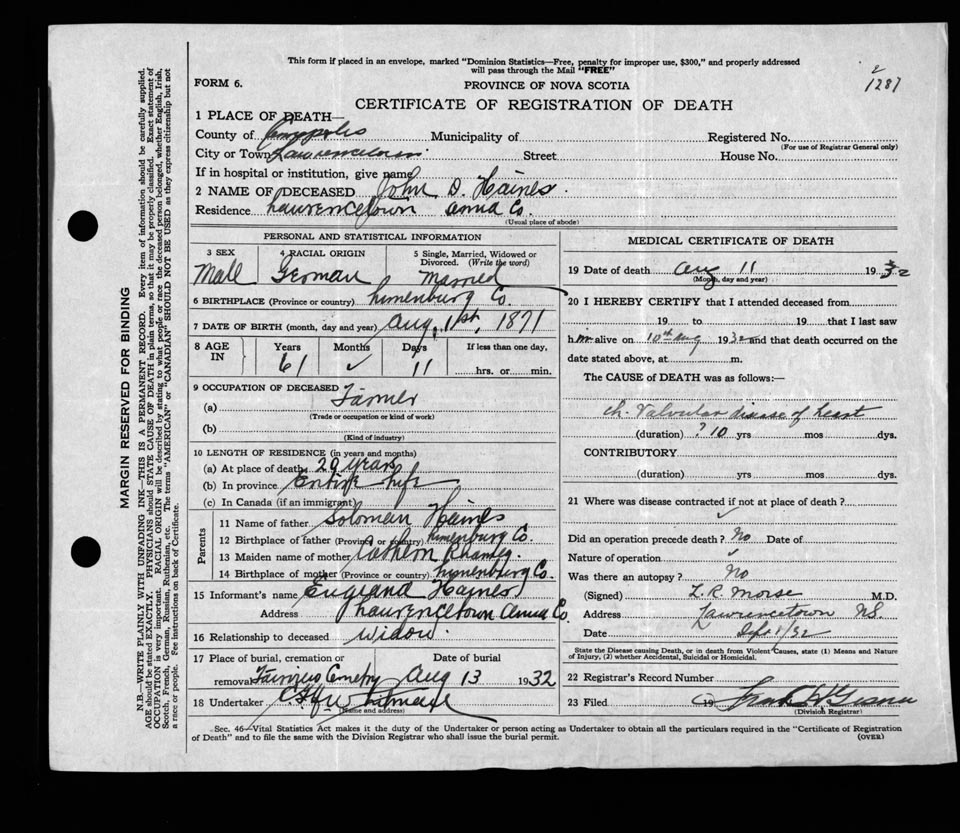 This form if placed in an envelope, marked "Dominion Statistics—Free, penalty for improper use, $300," and properly addressed
will pass through the Mail "FREE"
1287
FORM 6.
PROVINCE OF NOVA SCOTIA
CERTIFICATE OF REGISTRATION OF DEATH
1 PLACE OF DEATH—
County of Annapolis Municipality of Registered No.
(For use of Registrar General only)
City or Town Lawrencetown Street House No.
If in hospital or institution, give name
2 NAME OF DECEASED John D. Haines.
Residence Lawrencetown Anna Co.
(Usual place of abode)
PERSONAL AND STATISTICAL INFORMATION
3 SEX 4 RACIAL ORIGIN 5 Single, Married, Widowed or
Divorced. (Write the word)
Male German Married
6 BIRTHPLACE (Province or country) Lunenburg Co.
7 DATE OF BIRTH (month, day and year) Aug. 1st, 1871
8 AGE IN Years Months Days If less than one day,
61 ✓ 11 hrs. or min.
9 OCCUPATION OF DECEASED Farmer
(a)
(Trade or occupation or kind of work)
(b)
(Kind of industry)
10 LENGTH OF RESIDENCE (in years and months)
(a) At place of death 29 years
(b) In province Entire life
(c) In Canada (if an immigrant)
Parents
11 Name of father Soloman Haines
12 Birthplace of father (Province or country) Lunenburg Co.
13 Maiden name of mother
14 Birthplace of mother (Province or country) Lunenburg Co.
15 Informant's name Haines
Address Lawrencetown Anna Co.
16 Relationship to deceased Widow.
17 Place of burial, cremation or Date of burial
removal Cemetry Aug 13 1932
18 Undertaker
(Name and address)
MEDICAL CERTIFICATE OF DEATH
19 Date of death Aug 11 1932
(Month, day and year)
20 I HEREBY CERTIFY that I attended deceased from
19 to 19 that I last saw
him alive on 10th Aug 1932 and that death occurred on the
date stated above, at m.
The CAUSE of DEATH was as follows:—
Ch. Valvular disease of heart
(duration) ? 10 yrs mos dys.
CONTRIBUTORY
(duration) yrs. mos. dys.
21 Where was disease contracted if not at place of death?
✓
Did an operation precede death? No Date of
Nature of operation ✓
Was there an autopsy? No
(Signed) L. R. Morse M.D.
Address Lawrencetown NS
Date Sept 1/32
State the Disease causing Death, or in death from Violent Causes, state (1) Means and Nature
of Injury, (2) whether Accidental, Suicidal or Homicidal.
22 Registrar's Record Number
23 Filed 19
(Division Registrar)
Sec. 46—Vital Statistics Act makes it the duty of the Undertaker or person acting as Undertaker to obtain all the particulars required in the "Certificate of Registration
of Death" and to file the same with the Division Registrar who shall issue the burial permit.
(OVER)
MARGIN RESERVED FOR BINDING
N.B.—WRITE PLAINLY WITH UNFADING INK—THIS IS A PERMANENT RECORD. Every item of information should be carefully supplied.
AGE should be stated EXACTLY. PHYSICIANS should STATE CAUSE OF DEATH in plain terms, so that it may be properly classified. Exact statement of
OCCUPATION is very important. RACIAL ORIGIN will be described by stating to what people or race the deceased person belonged, whether English, Irish,
Scotch, French, German, Russian, Ruthenian, etc. The terms "AMERICAN" or "CANADIAN" SHOULD NOT BE USED as they express citizenship but not
a race or people. Fee instructions on back of Certificate.